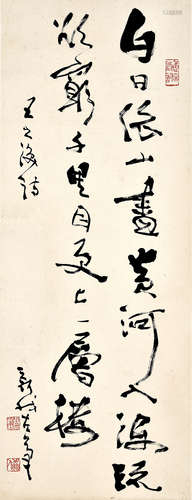 白日依山盡黄河入海流
欲窮千里目更上一層樓
王之渙詩
新我左筆